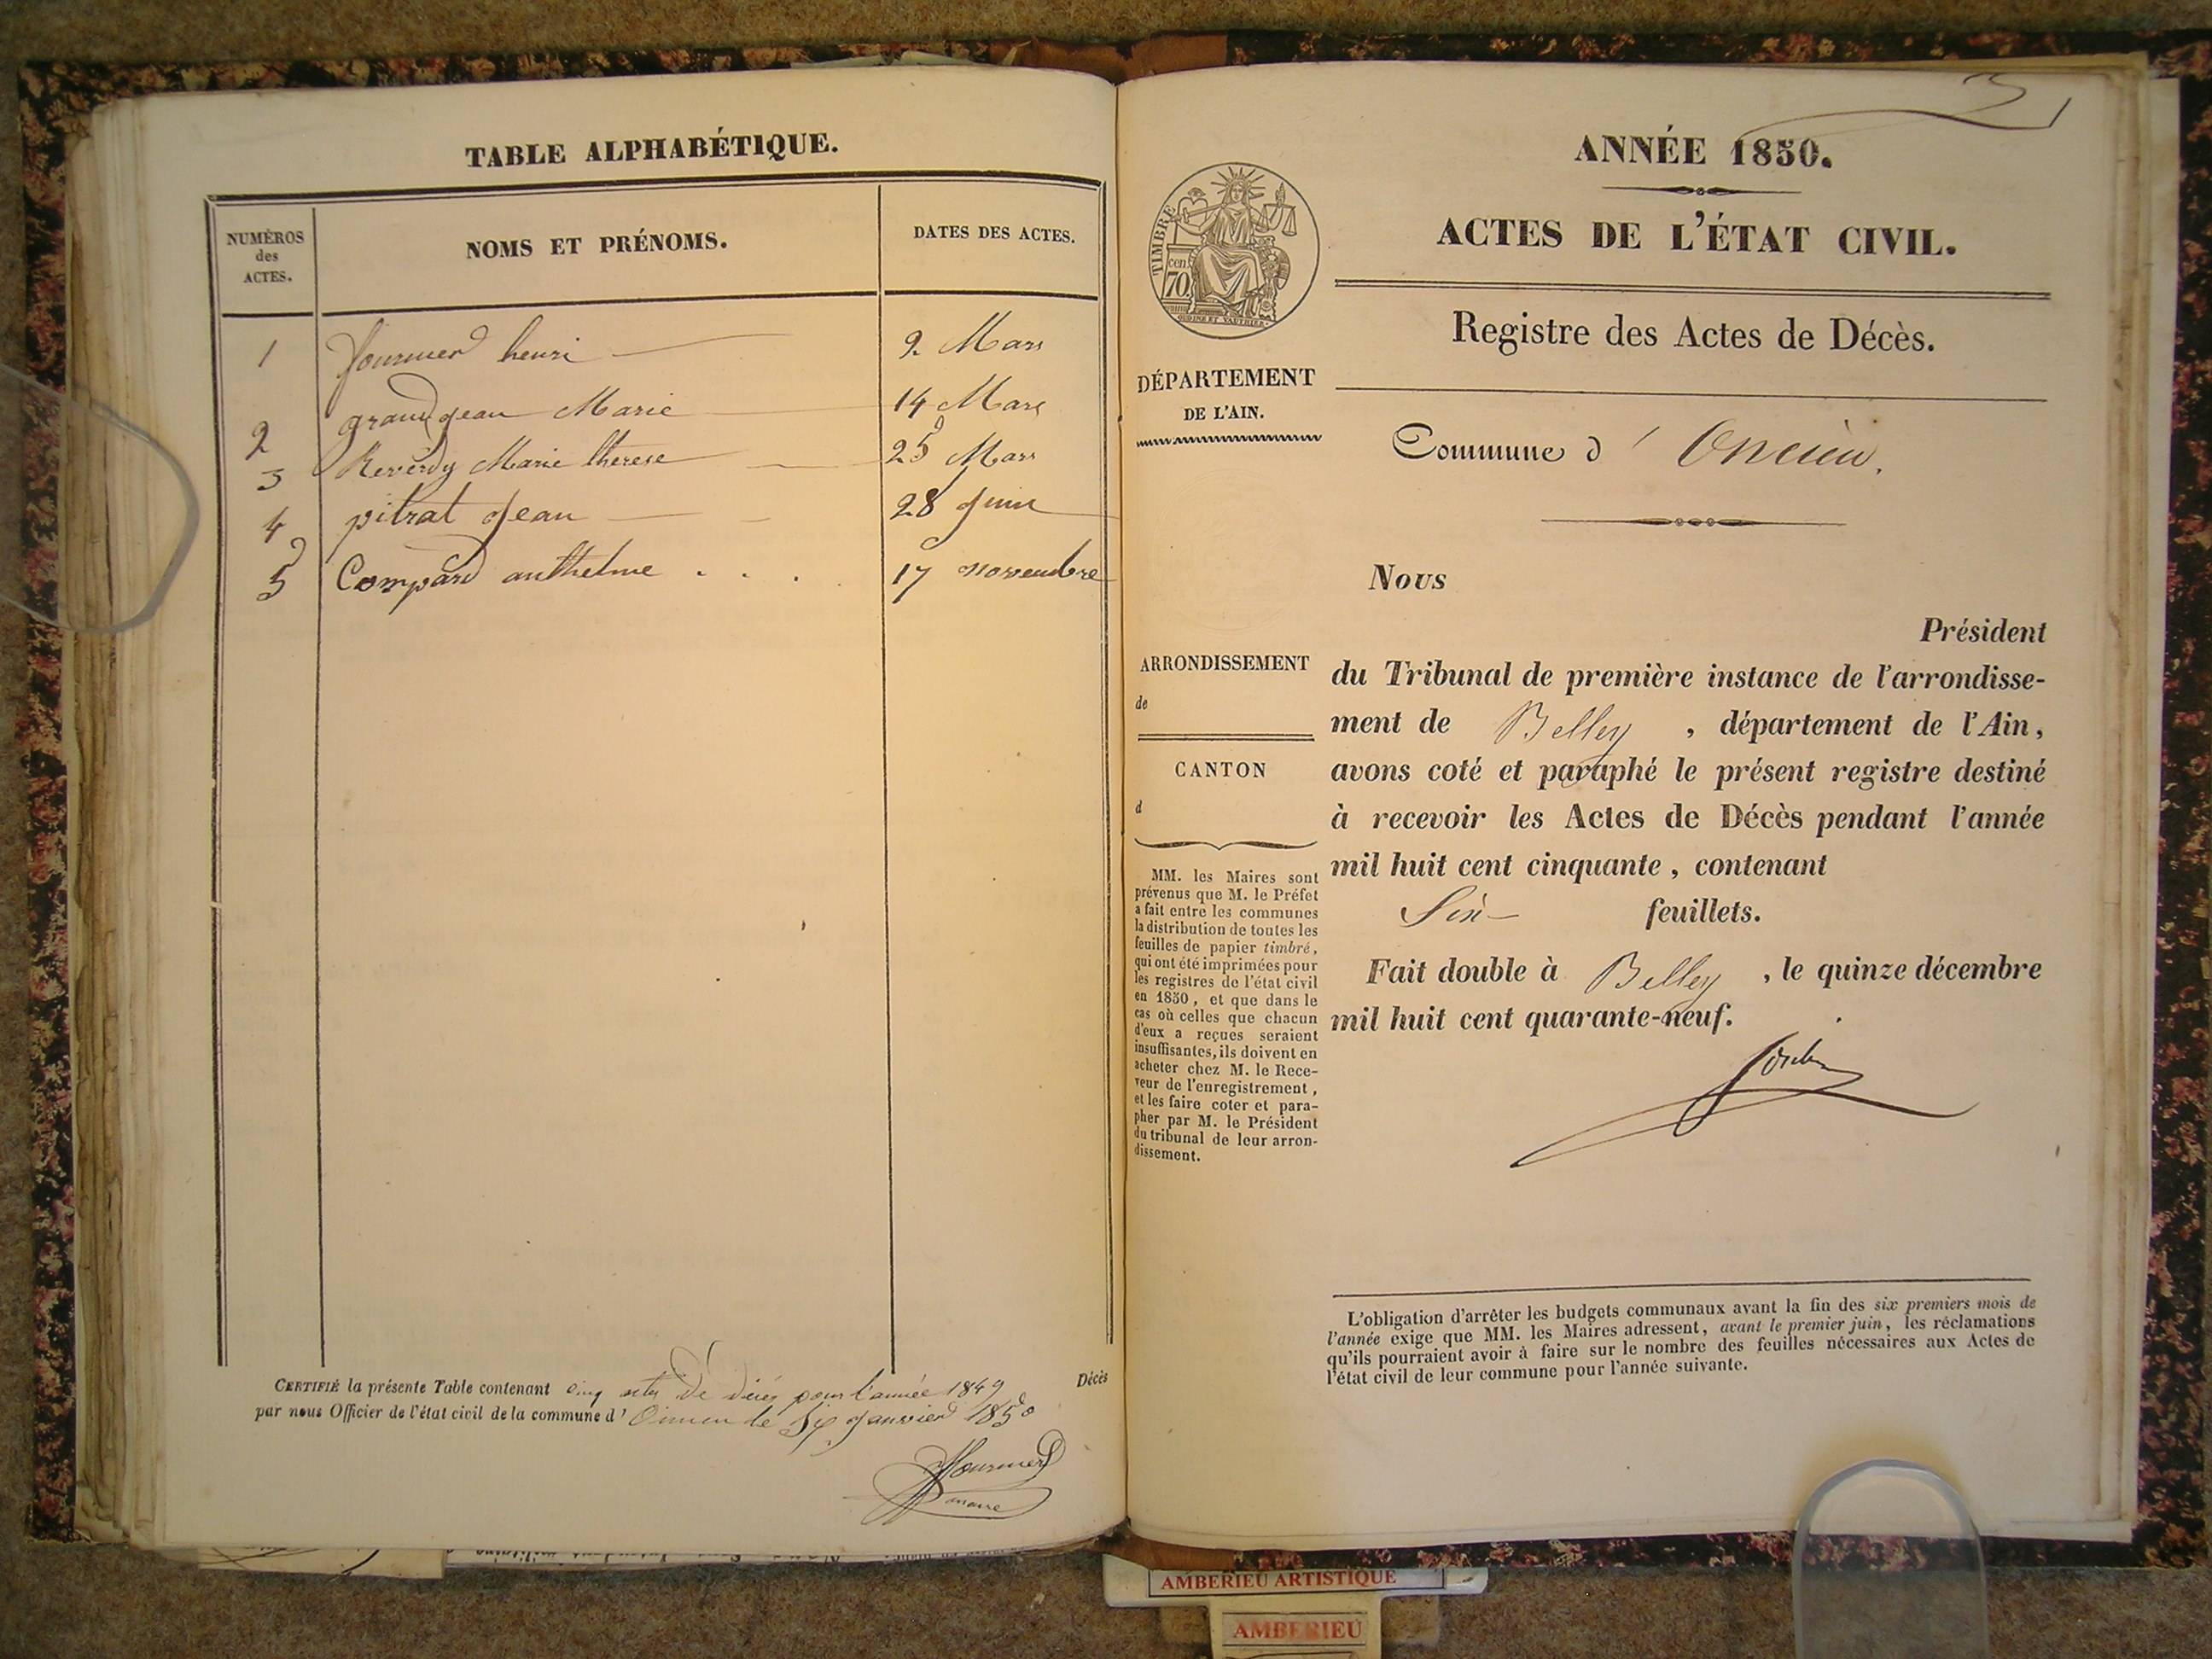 TABLE ALPHABÉTIQUE.
NUMÉROS
des
ACTES.
NOMS ET PRÉNOMS.
DATES DES ACTES.
1 fournier henri 9 Mars
2 grandjean Marie 14 Mars
3 Reverdy Marie therese 25 Mars
4 pitrat Jean 28 Juin
5 Compard anthelme . . . 17 novembre
CERTIFIÉ la présente Table contenant cinq actes De décès pour l'année 1849 Décès
par nous Officier de l'état civil de la commune d' Oncieu le Six Janvier 1850
fournier
maire
3
ANNÉE 1850.
ACTES DE L'ÉTAT CIVIL.
Registre des Actes de Décès.
TIMBRE
70 cen.
OUDINÉ ET VAUTHIER
DÉPARTEMENT
DE L'AIN.
Commune d ' Oncieu.
Nous
Président
du Tribunal de première instance de l'arrondisse-
ment de Belley , département de l'Ain,
avons coté et paraphé le présent registre destiné
à recevoir les Actes de Décès pendant l'année
mil huit cent cinquante , contenant
Six feuillets.
Fait double à Belley , le quinze décembre
mil huit cent quarante-neuf.
ARRONDISSEMENT
de
CANTON
d
MM. les Maires sont
prévenus que M. le Préfet
a fait entre les communes
la distribution de toutes les
feuilles de papier timbré,
qui ont été imprimées pour
les registres de l'état civil
en 1850, et que dans le
cas où celles que chacun
d'eux a reçues seraient
insuffisantes, ils doivent en
acheter chez M. le Rece-
veur de l'enregistrement,
et les faire coter et para-
pher par M. le Président
du tribunal de leur arron-
dissement.
L'obligation d'arrêter les budgets communaux avant la fin des six premiers mois de
l'année exige que MM. les Maires adressent, avant le premier juin, les réclamations
qu'ils pourraient avoir à faire sur le nombre des feuilles nécessaires aux Actes de
l'état civil de leur commune pour l'année suivante.
AMBERIEU ARTISTIQUE
AMBERIEU